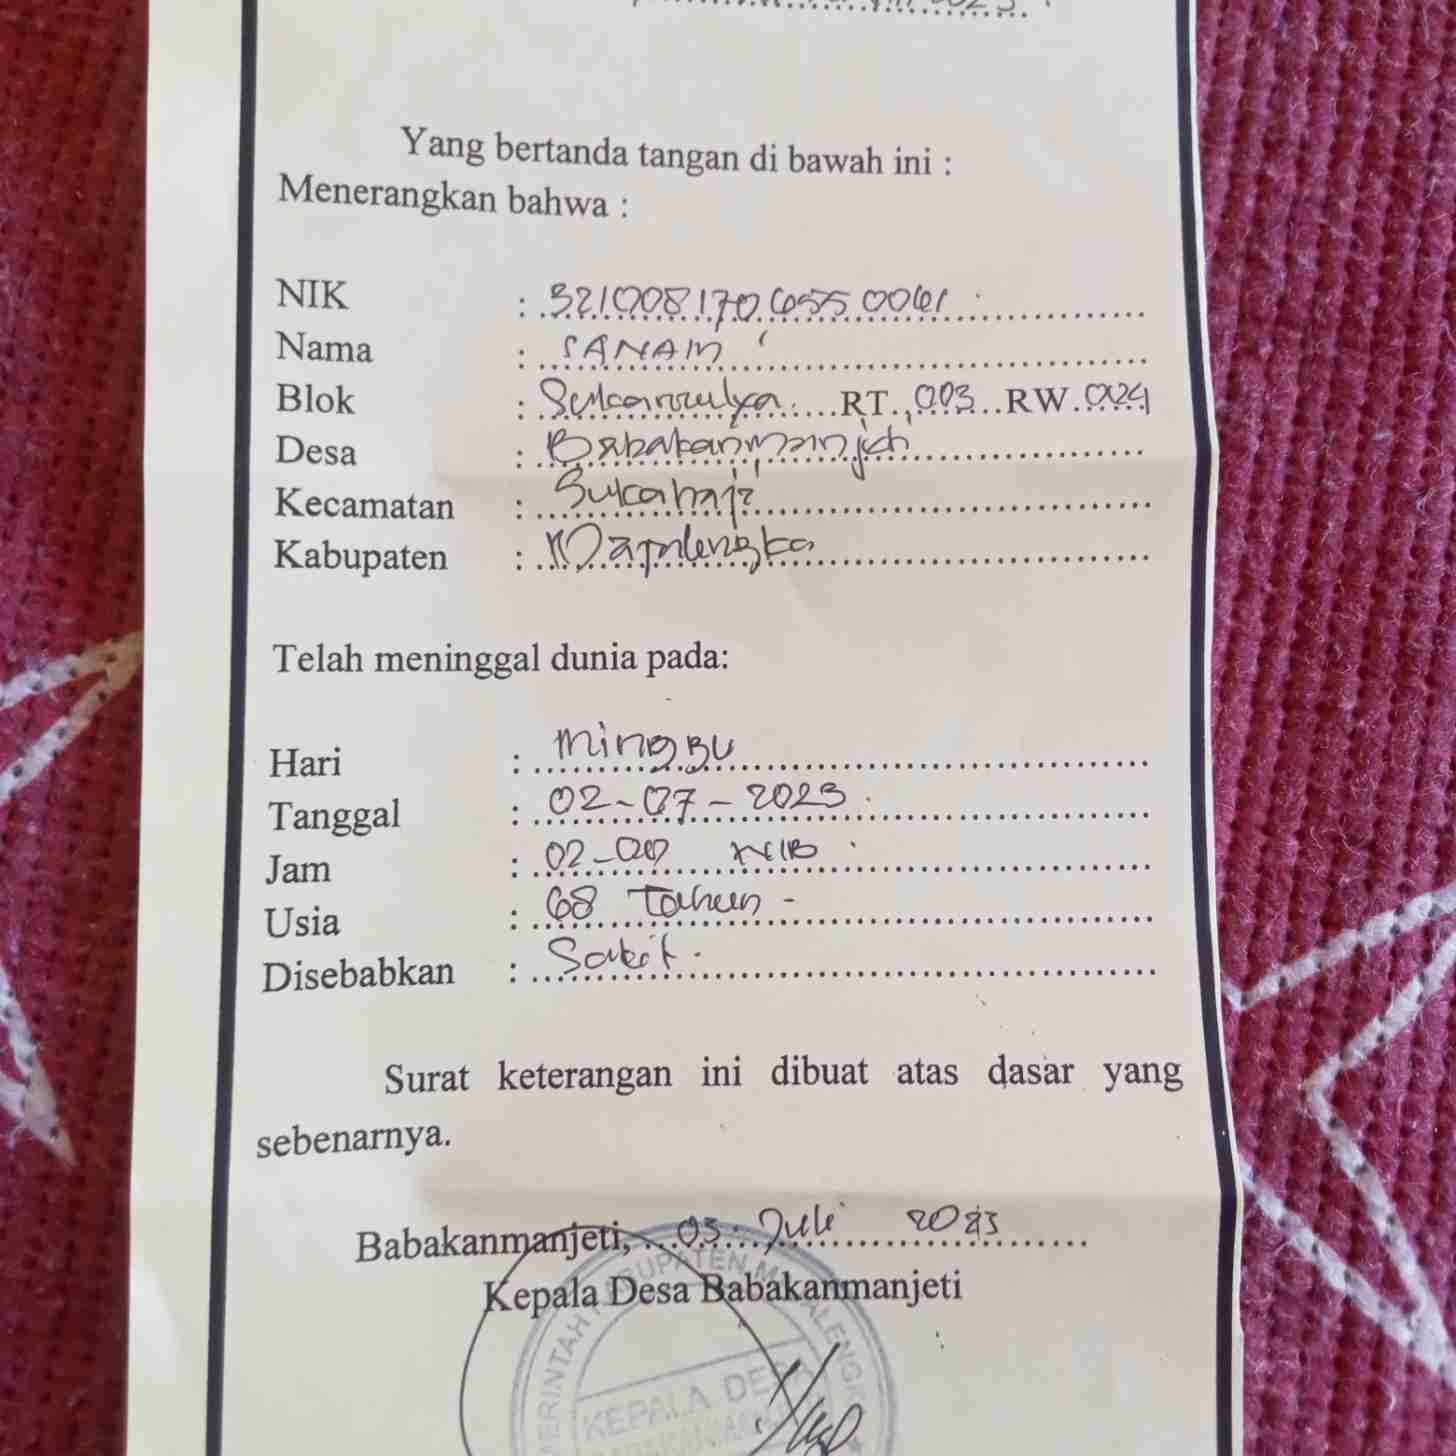 2023.
Yang bertanda tangan di bawah ini :
Menerangkan bahwa :
NIK : 3210081706550061
Nama : SANAIN
Blok : Sukamulya RT. 003 RW. 004
Desa : Babakanmanjeti
Kecamatan : Sukahaji
Kabupaten : Majalengka
Telah meninggal dunia pada:
Hari : Minggu
Tanggal : 02-07-2023
Jam : 02-00 WIB
Usia : 68 Tahun -
Disebabkan : Sakit.
Surat keterangan ini dibuat atas dasar yang
sebenarnya.
Babakanmanjeti, 03 Juli 2023
Kepala Desa Babakanmanjeti
KEPALA DESA